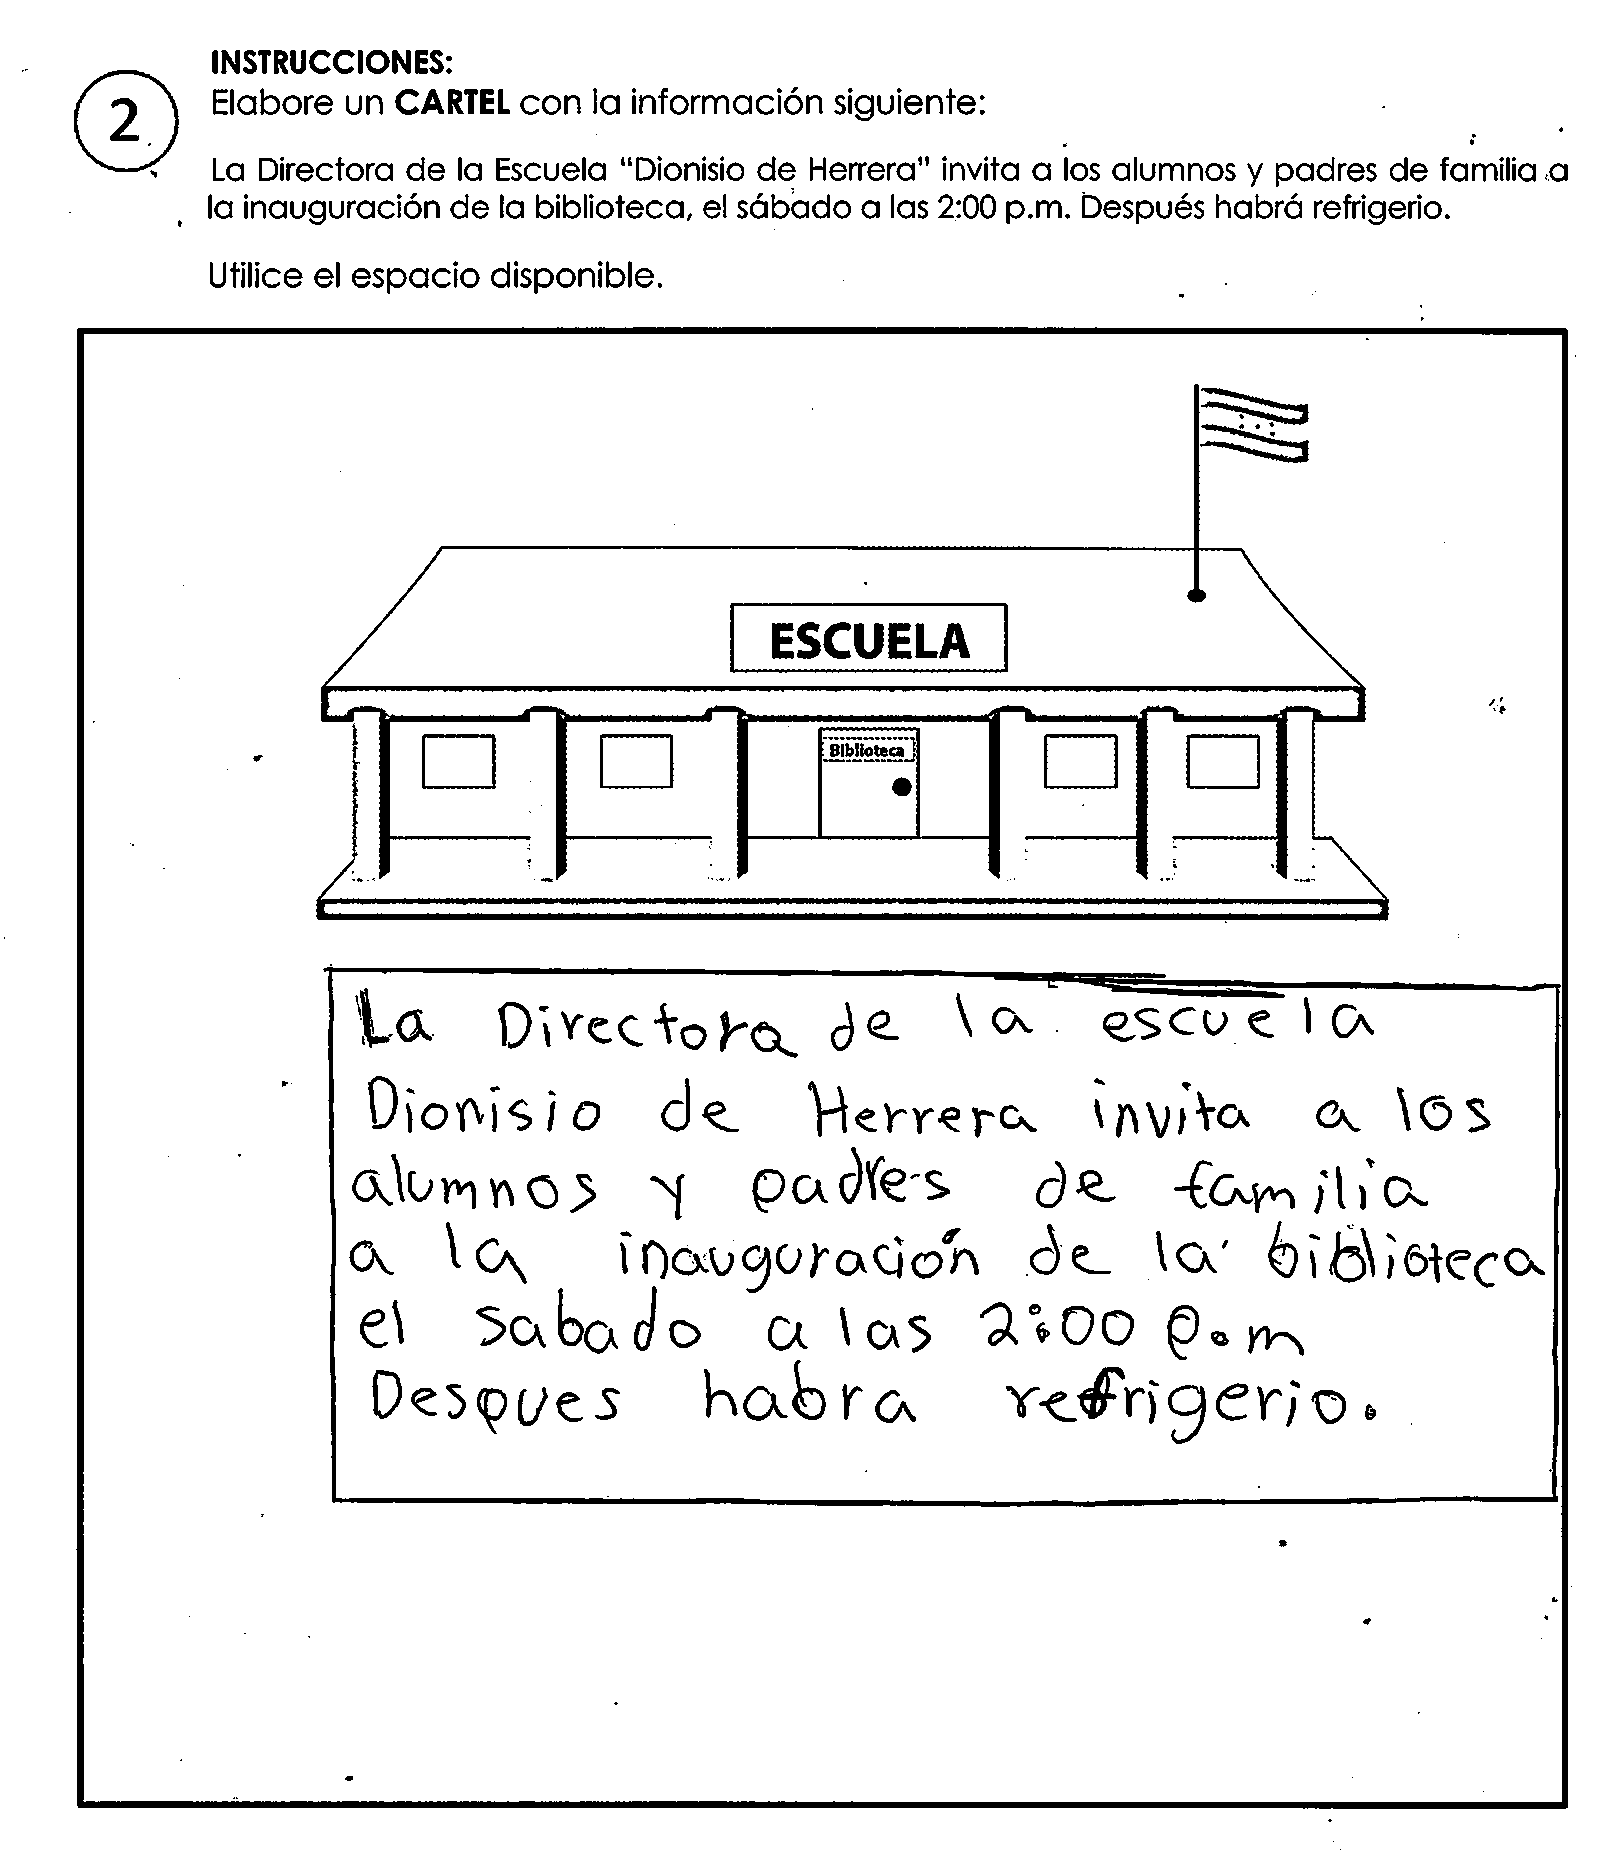 INSTRUCCIONES:
2
Elabore un CARTEL con la información siguiente:
La Directora de la Escuela "Dionisio de Herrera" invita a los alumnos y padres de familia a
la inauguración de la biblioteca, el sábado a las 2:00 p.m. Después habrá refrigerio.
Utilice el espacio disponible.
ESCUELA
Biblioteca
La Directora de la escuela
Dionisio de Herrera invita a los
alumnos y padres de familia
a la inauguración de la biblioteca
el sabado a las 2:00 p.m
Despues habra refrigerio.